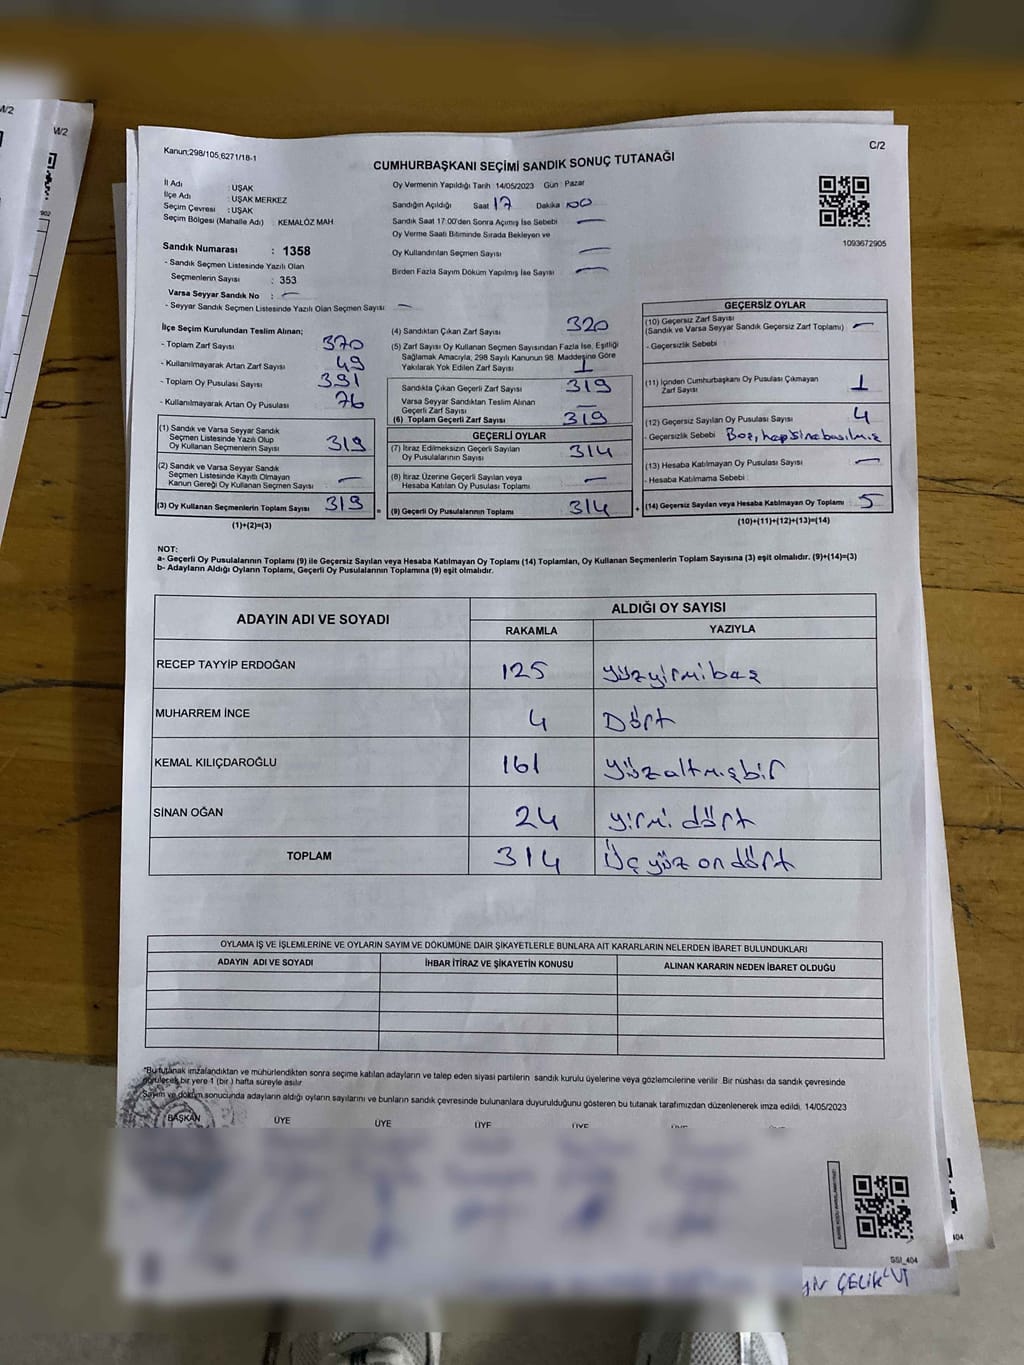 W/2
W/2
902
Kanun;298/105,6271/18-1
C/2
CUMHURBAŞKANI SEÇİMİ SANDIK SONUÇ TUTANAĞI
İl Adı : UŞAK
İlçe Adı : UŞAK MERKEZ
Seçim Çevresi : UŞAK
Seçim Bölgesi (Mahalle Adı) : KEMALÖZ MAH
Oy Vermenin Yapıldığı Tarih 14/05/2023 Gün : Pazar
Sandığın Açıldığı Saat 17 Dakika 00
Sandık Saat 17:00'den Sonra Açımış İse Sebebi —
Oy Verme Saati Bitiminde Sırada Bekleyen ve
Oy Kullandırılan Seçmen Sayısı —
Birden Fazla Sayım Döküm Yapılmış İse Sayısı —
1093672905
Sandık Numarası : 1358
- Sandık Seçmen Listesinde Yazılı Olan
Seçmenlerin Sayısı : 353
Varsa Seyyar Sandık No : —
- Seyyar Sandık Seçmen Listesinde Yazılı Olan Seçmen Sayısı —
İlçe Seçim Kurulundan Teslim Alınan;
- Toplam Zarf Sayısı 370
- Kullanılmayarak Artan Zarf Sayısı 49
- Toplam Oy Pusulası Sayısı 391
- Kullanılmayarak Artan Oy Pusulası 76
(1) Sandık ve Varsa Seyyar Sandık
Seçmen Listesinde Yazılı Olup
Oy Kullanan Seçmenlerin Sayısı 319
(2) Sandık ve Varsa Seyyar Sandık
Seçmen Listesinde Kayıtlı Olmayan
Kanun Gereği Oy Kullanan Seçmen Sayısı —
(3) Oy Kullanan Seçmenlerin Toplam Sayısı 319
(1)+(2)=(3)
(4) Sandıktan Çıkan Zarf Sayısı 320
(5) Zarf Sayısı Oy Kullanan Seçmen Sayısından Fazla İse, Eşitliği
Sağlamak Amacıyla, 298 Sayılı Kanunun 98. Maddesine Göre
Yakılarak Yok Edilen Zarf Sayısı 1
Sandıkta Çıkan Geçerli Zarf Sayısı 319
Varsa Seyyar Sandıktan Teslim Alınan
Geçerli Zarf Sayısı —
(6) Toplam Geçerli Zarf Sayısı 319
GEÇERLİ OYLAR
(7) İtiraz Edilmeksizin Geçerli Sayılan
Oy Pusulalarının Sayısı 314
(8) İtiraz Üzerine Geçerli Sayılan veya
Hesaba Katılan Oy Pusulası Toplamı —
(9) Geçerli Oy Pusulalarının Toplamı 314
=
+
GEÇERSİZ OYLAR
(10) Geçersiz Zarf Sayısı
(Sandık ve Varsa Seyyar Sandık Geçersiz Zarf Toplamı) —
- Geçersizlik Sebebi
(11) İçinden Cumhurbaşkanı Oy Pusulası Çıkmayan
Zarf Sayısı 1
(12) Geçersiz Sayılan Oy Pusulası Sayısı 4
- Geçersizlik Sebebi Boz, hepsine basılmış
(13) Hesaba Katılmayan Oy Pusulası Sayısı —
- Hesaba Katılmama Sebebi
(14) Geçersiz Sayılan veya Hesaba Katılmayan Oy Toplamı 5
(10)+(11)+(12)+(13)=(14)
NOT:
a- Geçerli Oy Pusulalarının Toplamı (9) ile Geçersiz Sayılan veya Hesaba Katılmayan Oy Toplamı (14) Toplamları, Oy Kullanan Seçmenlerin Toplam Sayısına (3) eşit olmalıdır. (9)+(14)=(3)
b- Adayların Aldığı Oyların Toplamı, Geçerli Oy Pusulalarının Toplamına (9) eşit olmalıdır.
ADAYIN ADI VE SOYADI
ALDIĞI OY SAYISI
RAKAMLA YAZIYLA
RECEP TAYYİP ERDOĞAN 125 yüzyirmibeş
MUHARREM İNCE 4 Dört
KEMAL KILIÇDAROĞLU 161 yüzaltmışbir
SİNAN OĞAN 24 yirmi dört
TOPLAM 314 Üç yüz on dört
OYLAMA İŞ VE İŞLEMLERİNE VE OYLARIN SAYIM VE DÖKÜMÜNE DAİR ŞİKAYETLERLE BUNLARA AİT KARARLARIN NELERDEN İBARET BULUNDUKLARI
ADAYIN ADI VE SOYADI İHBAR İTİRAZ VE ŞİKAYETİN KONUSU ALINAN KARARIN NEDEN İBARET OLDUĞU
*Bu tutanak imzalandıktan ve mühürlendikten sonra seçime katılan adayların ve talep eden siyasi partilerin sandık kurulu üyelerine veya gözlemcilerine verilir. Bir nüshası da sandık çevresinde
görülecek bir yere 1 (bir ) hafta süreyle asılır
Sayım ve döküm sonucunda adayların aldığı oyların sayılarını ve bunların sandık çevresinde bulunanlara duyurulduğunu gösteren bu tutanak tarafımızdan düzenlenerek imza edildi. 14/05/2023
BAŞKAN ÜYE ÜYE ÜYE ÜYE
SSI_404
404
ÇELİK